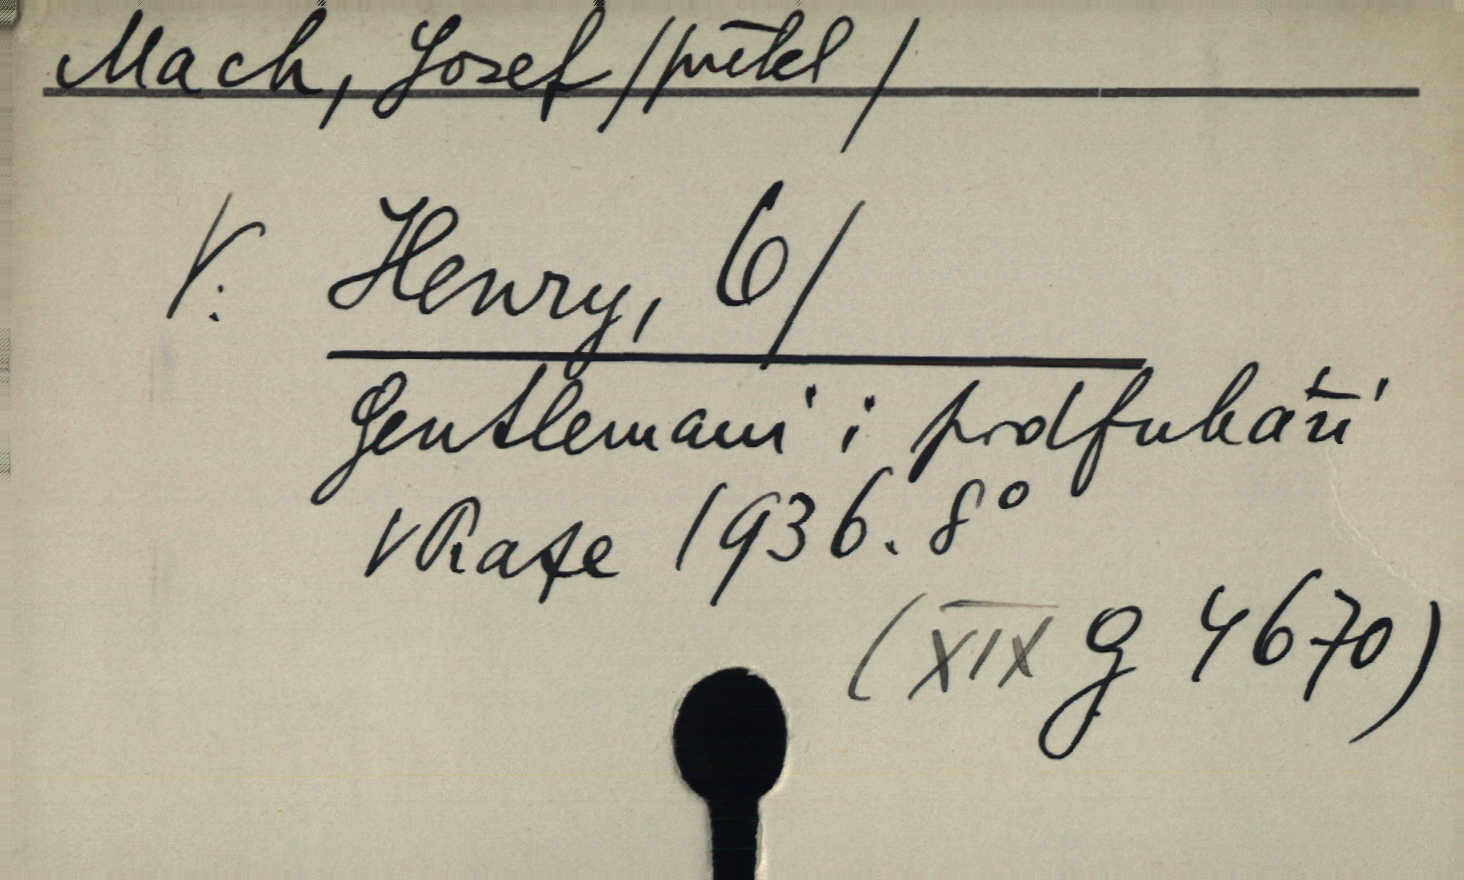 Mach, Josef /překl/
V. Henry, O/
Gentlemani i podfukáři
V Praze 1936. 8°
(XIX G 4670)